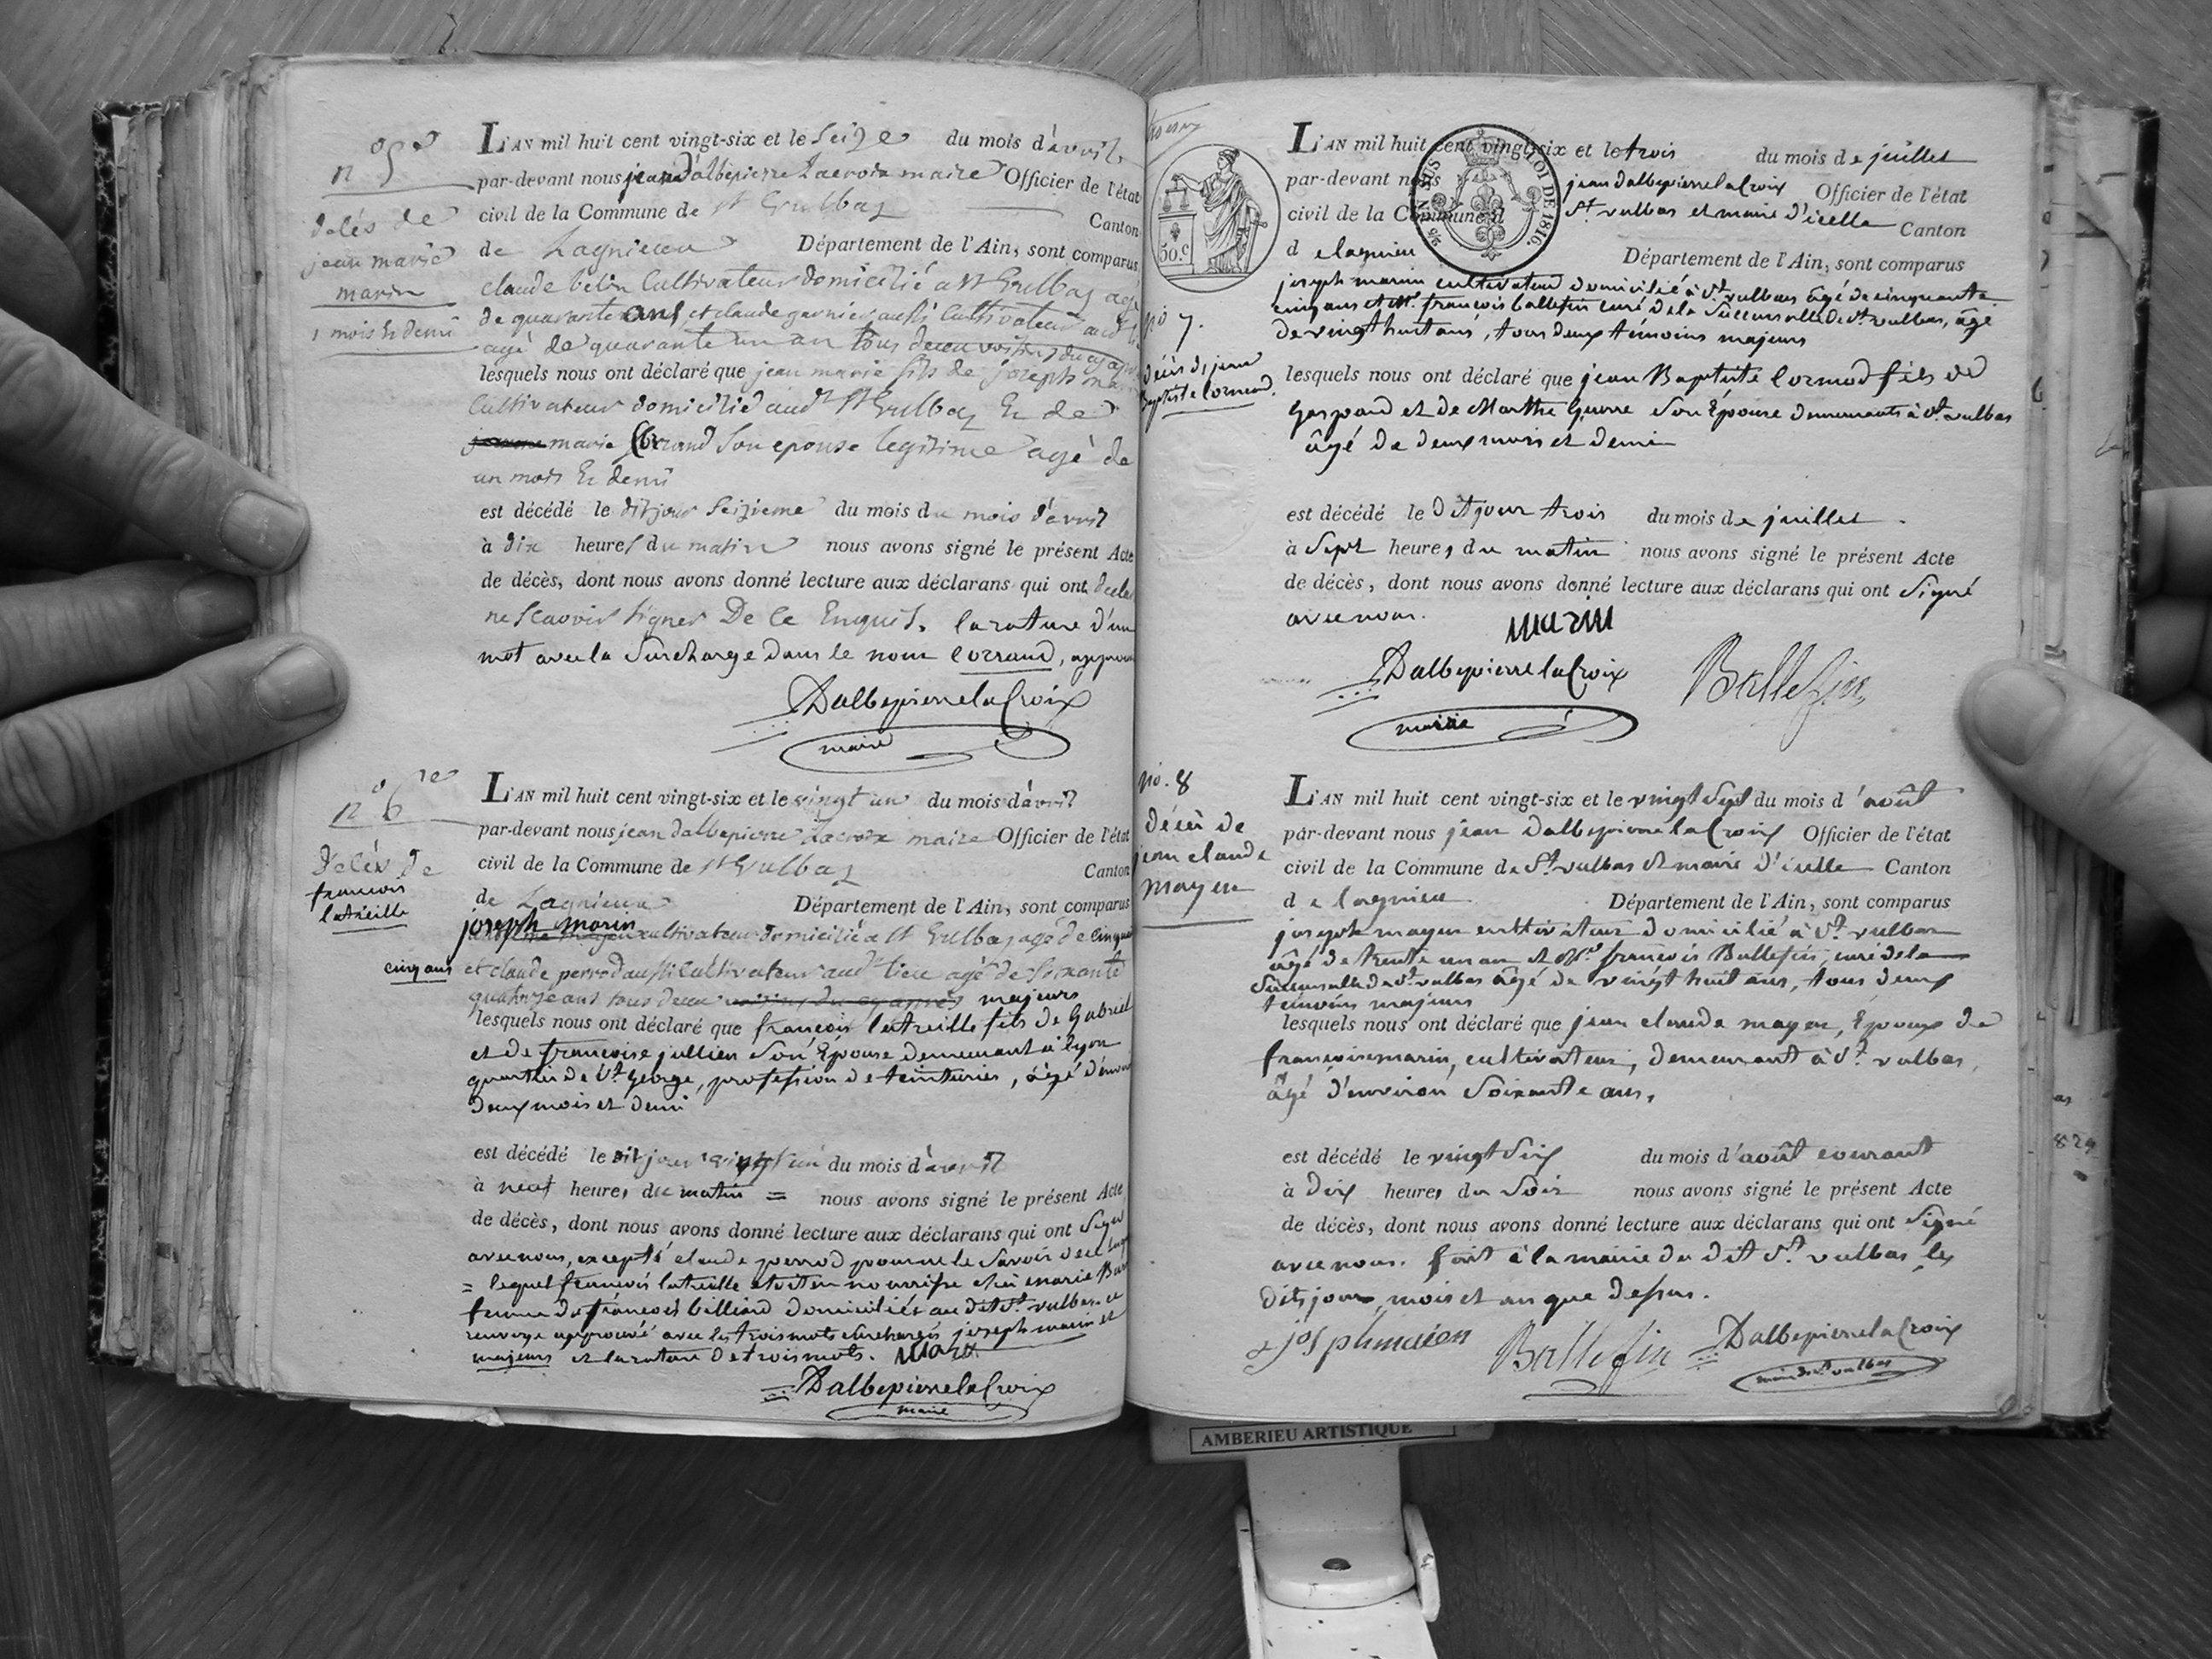 n° 5e
décés de
jean marie
marin
1 mois Et demi
L'AN mil huit cent vingt-six et le Seize du mois d'avril
par-devant nous jean d'albepierre Lacroix maire Officier de l'état
civil de la Commune de St Vulbaz Canton
de Lagnieux Département de l'Ain, sont comparus
claude belin Cultivateur domicilié a St Vulbaz agé
de quarante ans, et claude garnier aussi Cultivateur aud
agé de quarante un an tous deux voisins du
lesquels nous ont déclaré que jean marie fils de joseph marin
Cultivateur domicilié audt St Vulbaz Et de
marie Corrand Son epouse legitime agé de
un mois Et demi
est décédé le dit jour Seizieme du mois du mois d'avril
à dix heures du matin nous avons signé le présent Acte
de décès, dont nous avons donné lecture aux déclarans qui ont
ne Scavoir Signer De Ce Enquis. la rature d'un
mot avec la Surcharge dans le nom Corrand,
Dalbepierrelacroix
maire
n° 6
Décés De
francois
latreille
L'AN mil huit cent vingt-six et le vingt un du mois d'avril
par-devant nous jean dalbepierre Lacroix maire Officier de l'état
civil de la Commune de St Vulbaz Canton
de Lagnieux Département de l'Ain, sont comparus
joseph marin
cultivateur domicilié a St Vulbaz agé de cinquante
cinq ans et claude perrod aussi Cultivateur aud lieu agé de Soixante
quatorze ans tous deux voisins du cy après majeurs
lesquels nous ont déclaré que françois latreille fils de Gabriel
et de francoise jullien Son Epouse demeurant à lyon
quartier de St. George, profession de teinturier, âgé d'environ
deux mois et demi
est décédé le dit jour vingt un du mois d'avril
à neuf heures du matin = nous avons signé le présent Acte
de décès, dont nous avons donné lecture aux déclarans qui ont Signé
avec nous, excepté claude perrod pour ne le Savoir
= lequel francois latreille étoit en nourrisse chez marie
femme de françois billiard domiciliés au dit St. vulbas. ce
renvoye approuvé avec les trois mots Surchargés joseph marin et
majeurs et la rature de trois mots. Marin
Dalbepierrelacroix
maire
50.c
EN SUS
LOI DE 1816.
no 7.
décès de jean
baptiste Cormod.
L'AN mil huit cent vingt-six et le trois du mois de juillet
par-devant nous jean dalbepierrelaCroix Officier de l'état
civil de la Commune d St. vulbas et maire d'icelle Canton
de lagnieu Département de l'Ain, sont comparus
joseph marin cultivateur domicilié à St. vulbas âgé de cinquante
cinq ans et Mr. françois ballefin curé de la Succursalle de St. vulbas, âgé
de vingt huit ans, tous deux témoins majeurs
lesquels nous ont déclaré que jean Baptiste Cormod fils de
Gaspard et de Marthe Guerre Son Épouse demeurants à St. vulbas
âgé de deux mois et demi
est décédé le dit jour trois du mois de juillet.
à Sept heures du matin nous avons signé le présent Acte
de décès, dont nous avons donné lecture aux déclarans qui ont Signé
avec nous.
Marin
DalbepierrelaCroix
Ballefin
maire
no. 8
décès de
jean claude
mayen
L'AN mil huit cent vingt-six et le vingt Sept du mois d'août
par-devant nous jean DalbepierrelaCroix Officier de l'état
civil de la Commune de St. vulbas et maire d'icelle Canton
de lagnieu Département de l'Ain, sont comparus
joseph mayen cultivateur domicilié à St. vulbas
âgé de trente un an et Mr. françois Ballefin, curé de la
Succursalle de St. vulbas âgé de vingt huit ans, tous deux
témoins majeurs
lesquels nous ont déclaré que jean claude mayen, Époux de
françoise marin, cultivateur, demeurant à St. vulbas,
âgé d'environ Soixante ans,
est décédé le vingt Six du mois d'août courant
à dix heures du Soir nous avons signé le présent Acte
de décès, dont nous avons donné lecture aux déclarans qui ont Signé
avec nous. fait à la mairie du dit St. vulbas les
dits jour, mois et an que dessus.
Ballefin
DalbepierrelaCroix
maire de St vulbas
AMBERIEU ARTISTIQUE